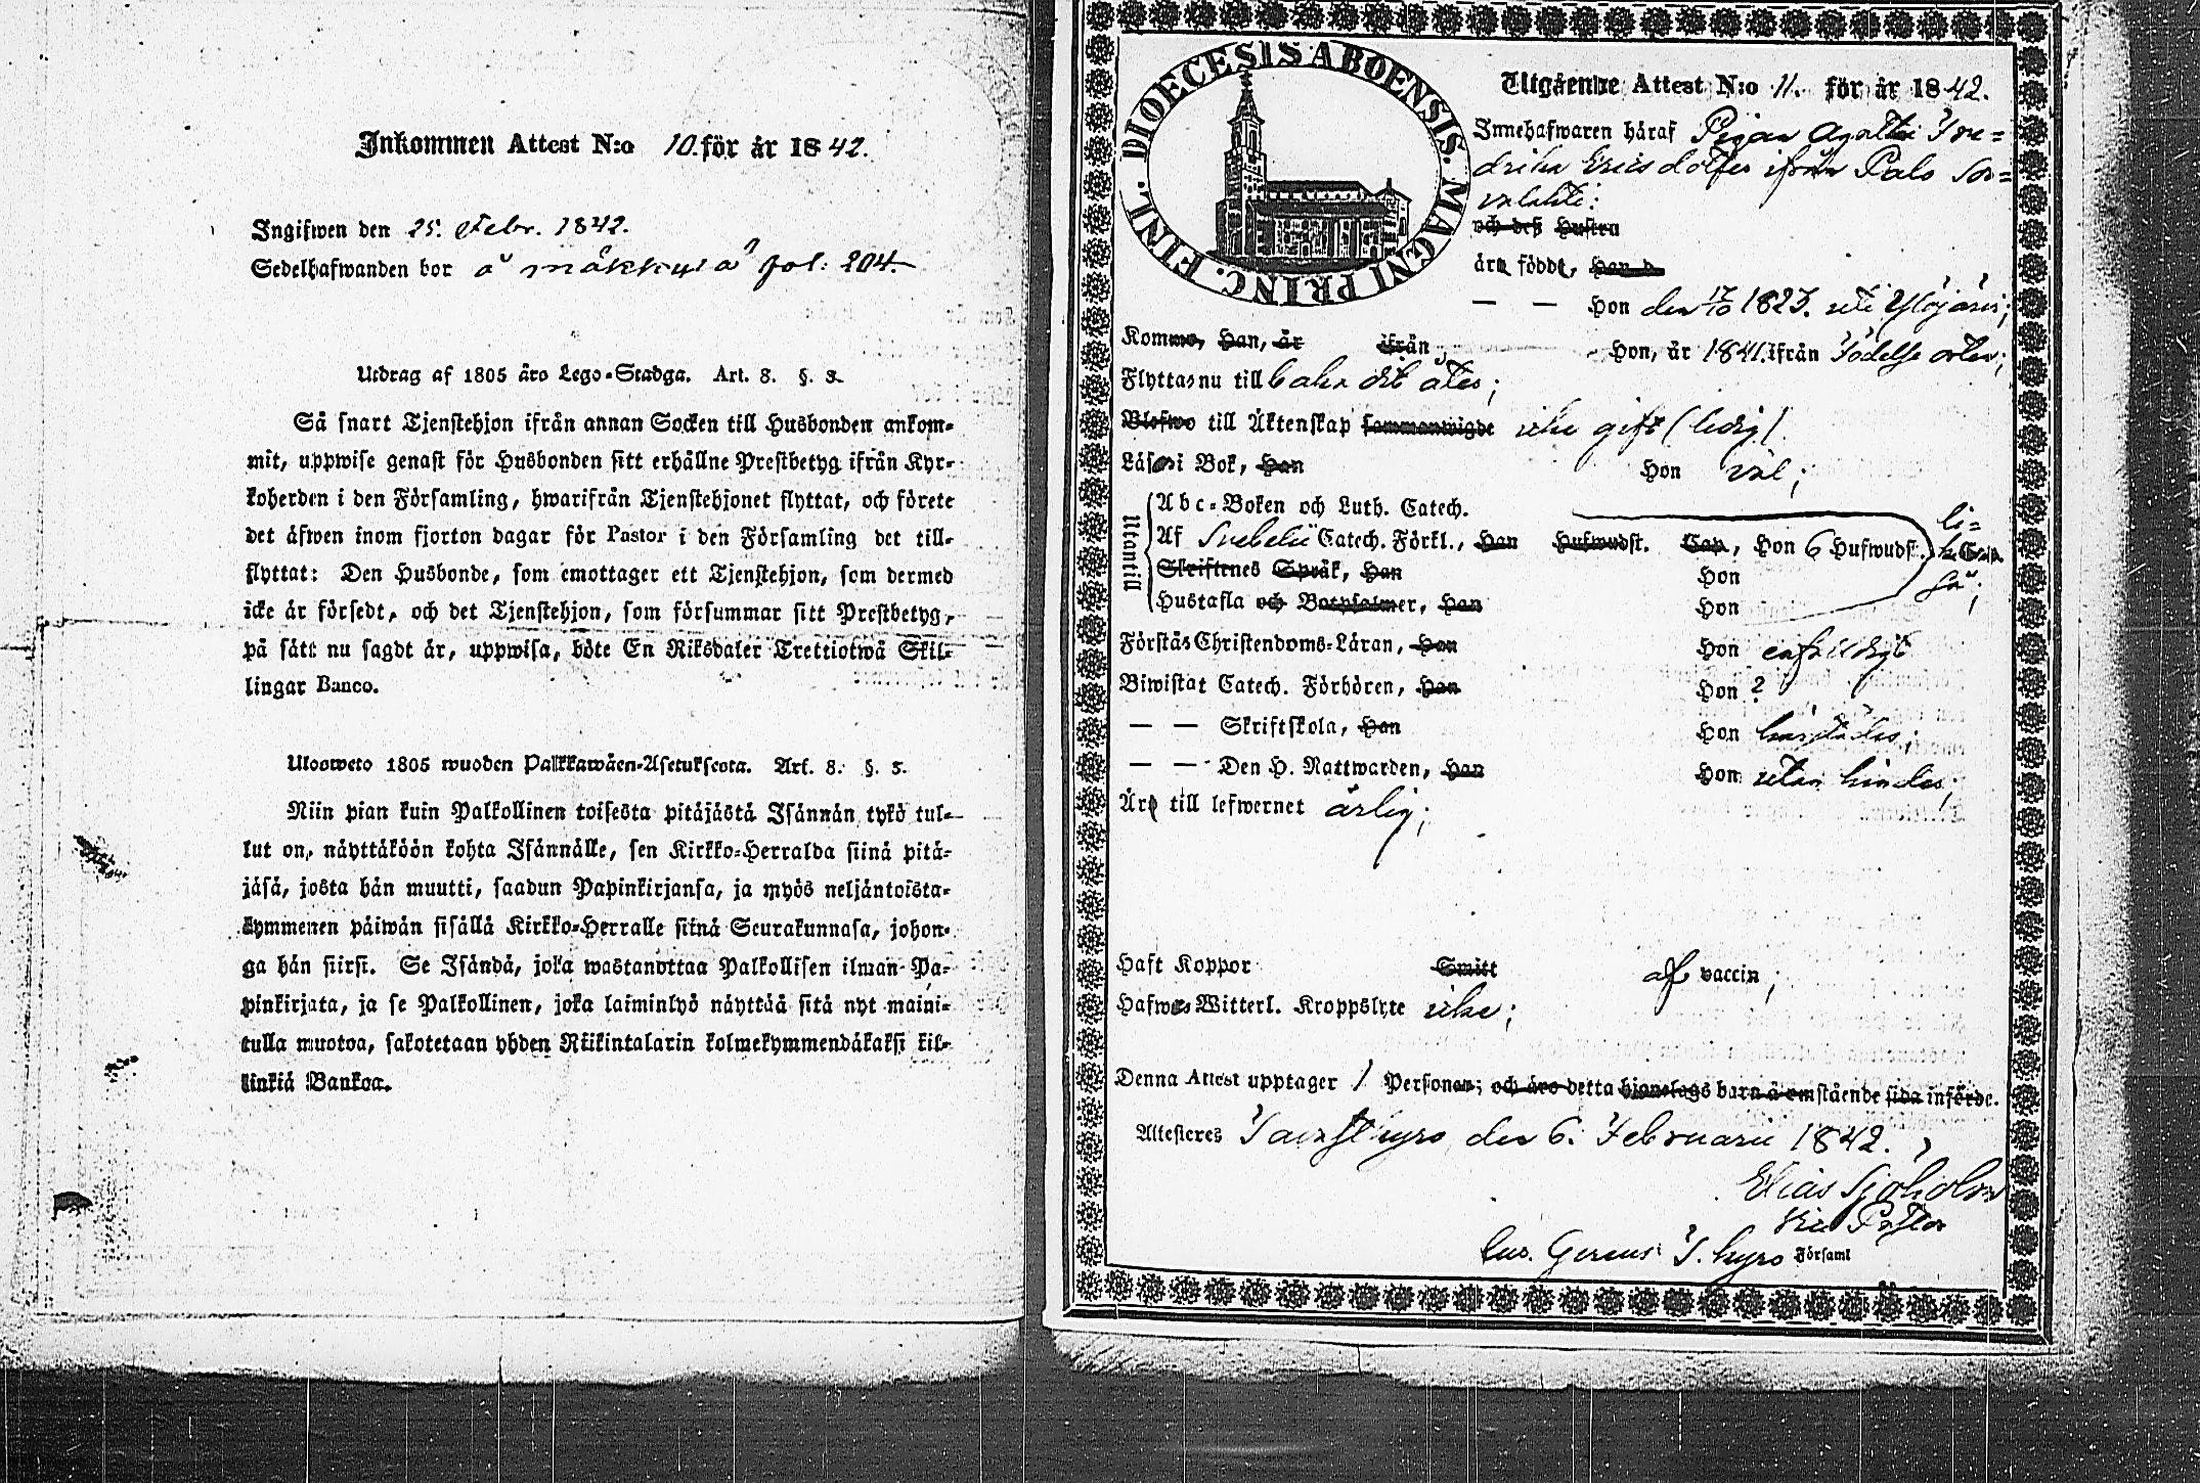 Inkommen Attest N:o 10. för år 1842.
Ingifwen den 25. Febr. 1842.
Sedelhafwanden bor å Mäkkylä fol: 204.
Utdrag af 1805 års Lego-Stadga. Art. 8. §. 3.
Så snart Tjenstehjon ifrån annan Socken till Husbonden ankom-
mit, uppwise genast för Husbonden sitt erhållne Prestbetyg ifrån Kyr-
koherden i den Församling, hwarifrån Tjenstehjonet flyttat, och förete
det äfwen inom fjorton dagar för Pastor i den Församling det till-
flyttat: Den Husbonde, som emottager ett Tjenstehjon, som dermed
icke är försedt, och det Tjenstehjon, som försummar sitt Prestbetyg,
på sätt nu sagdt är, uppwisa, böte En Riksdaler Trettiotwå Skil-
lingar Banco.
Ulosweto 1805 wuoden Palkkawäen-Asetuksesta. Art. 8. §. 3.
Niin pian kuin Palkollinen toisesta pitäjästä Isännän tykö tul-
lut on, näyttäköön kohta Isännälle, sen Kirkko-Herralda siinä pitä-
jäsä, josta hän muutti, saadun Papinkirjansa, ja myös neljäntoista-
kymmenen päiwän sisällä Kirkko-Herralle siinä Seurakunnasa, johon-
ga hän siirsi. Se Isändä, joka wastanottaa Palkollisen ilman Pa-
pinkirjata, ja se Palkollinen, joka laiminlyö näyttää sitä nyt maini-
tulla muotoa, sakotetaan yhden Riikintalarin kolmekymmendäkaksi kil-
linkiä Bankoa.
DIOECESIS ABOENSIS. MAGNI PRINC. FINL.
Utgående Attest N:o 11. för år 1842.
Innehafwaren häraf Pigan Agatha Fre-
drika Ericsdotter ifrån Palo Sor-
och deß Hustru
äro född,
— — Hon den 17/10 1823. uti Ylöjärvi;
Kommo, Han, är ifrån Hon, är 1841. ifrån födelse orten;
Flyttas nu till baka dit åter;
Blefwo till Äktenskap sammanwigde icke gift (ledig).
Läser i Bok, Han Hon väl;
Utantill
Abc-Boken och Luth. Catech.
Af Svebelii Catech. Förkl., Han Hufwudst. Cap, Hon 6 Hufwudst.
Skriftenes Språk, Han Hon
Hustafla och Botpsalmer, Han Hon
så;
Förstås Christendoms-Läran, Han Hon enfaldigt
Biwistat Catech. Förhören, Han Hon ?
— — Skriftskola, Han Hon härstädes;
— — Den H. Nattwarden, Han Hon utan hinder;
Äro till lefwernet ärlig;
Haft Koppor Smitt af vaccin;
Hafwes Witterl. Kroppslyte icke;
Denna Attest upptager 1 Personer; och äro detta hjonelags barn å omstående sida införde.
Attesteres Tavastkyro den 6. Februarii 1842.
Elias Sjöholm
Vice Pastor
T. kyro Församl